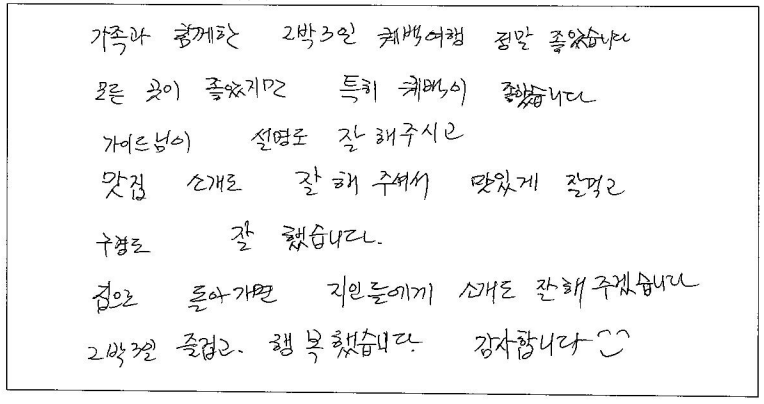 가족과 함께한 2박3일 퀘백여행 정말 좋았습니다
모든 곳이 좋았지만 특히 퀘백이 좋았습니다
가이드님이 설명도 잘 해주시고
맛집 소개도 잘 해 주셔서 맛있게 잘먹고
구경도 잘 했습니다.
집으로 돌아가면 지인들에게 소개도 잘해 주겠습니다
2박3일 즐겁고. 행복했습니다. 감사합니다